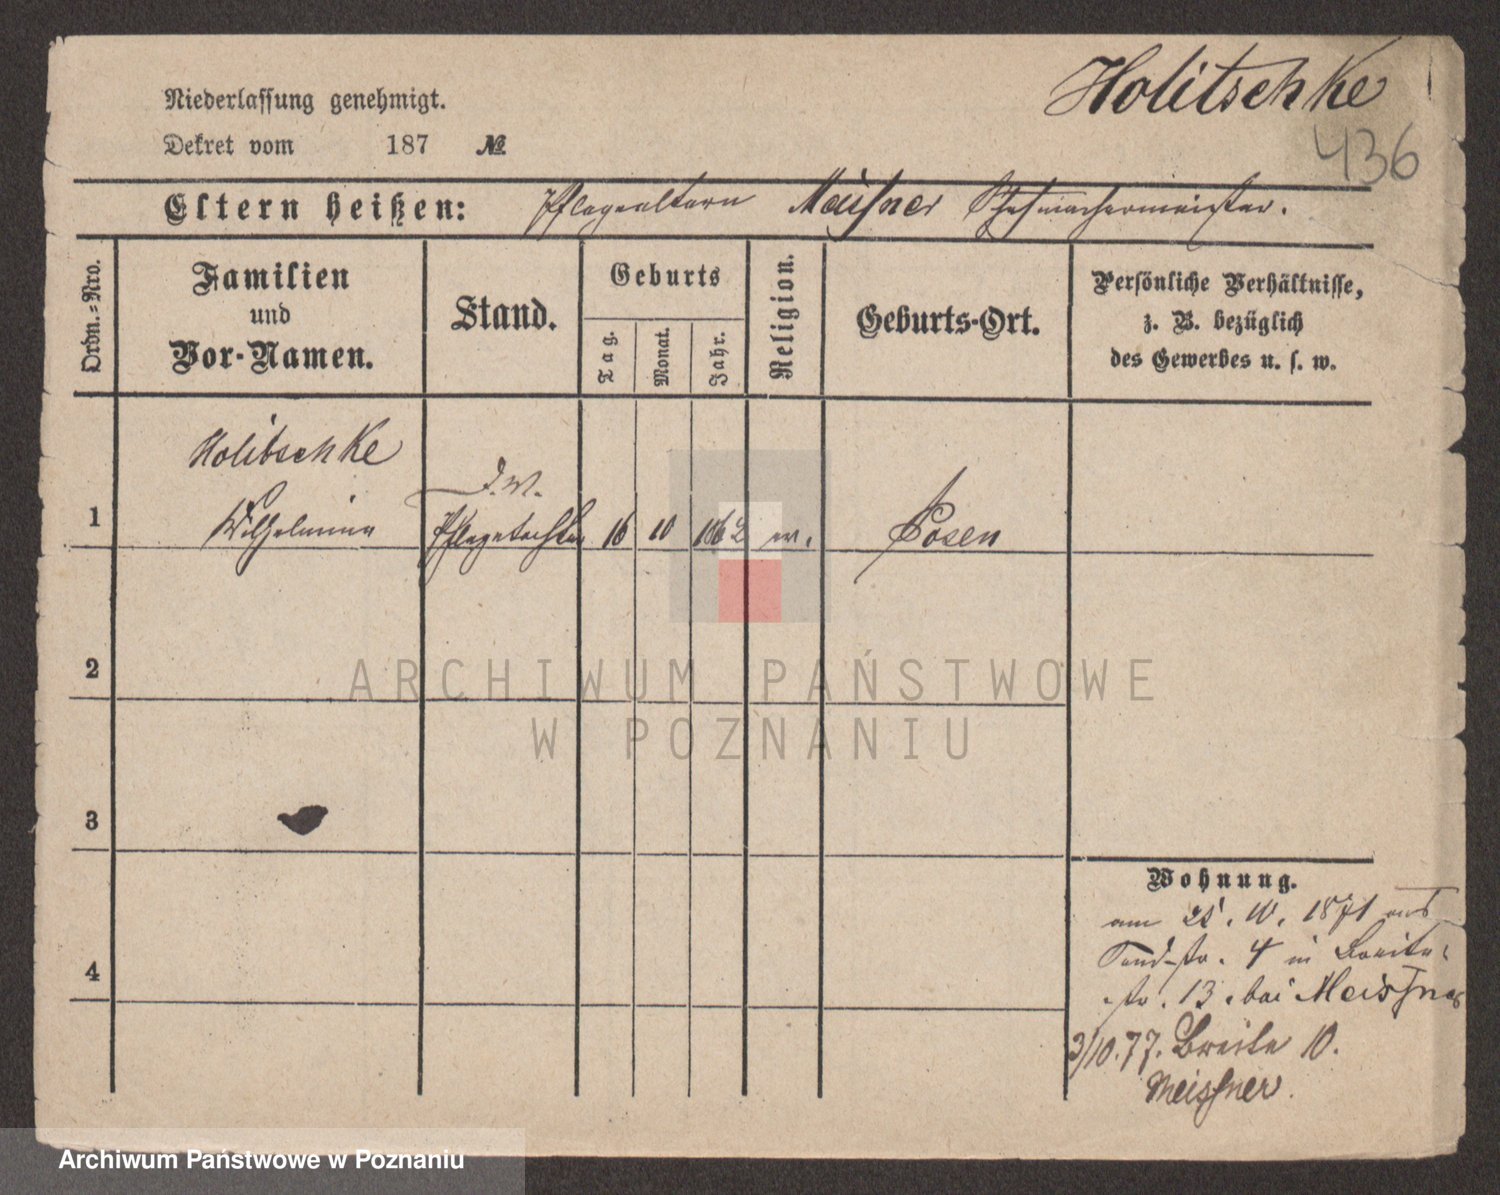 Holitschke
436
Niederlassung genehmigt.
Dekret vom 187 №
Eltern heißen: Pflegeeltern Meissner Schuhmachermeister.
Ordn.-Nro.
Familien und Vor-Namen.
Stand.
Geburts
Tag.
Monat.
Jahr.
Religion.
Geburts-Ort.
Persönliche Verhältnisse,
z. B. bezüglich
des Gewerbes u. s. w.
Holitschke
d. W.
1 Wilhelmine Pflegetochter 16 10 1862 ev. Posen
2
3
4
Wohnung.
am 1871 aus
str. 4 in Breite-
str. 13. bei Meissner
3/10.77. Breite 10.
Meissner.
ARCHIWUM PAŃSTWOWE
W POZNANIU
Archiwum Państwowe w Poznaniu